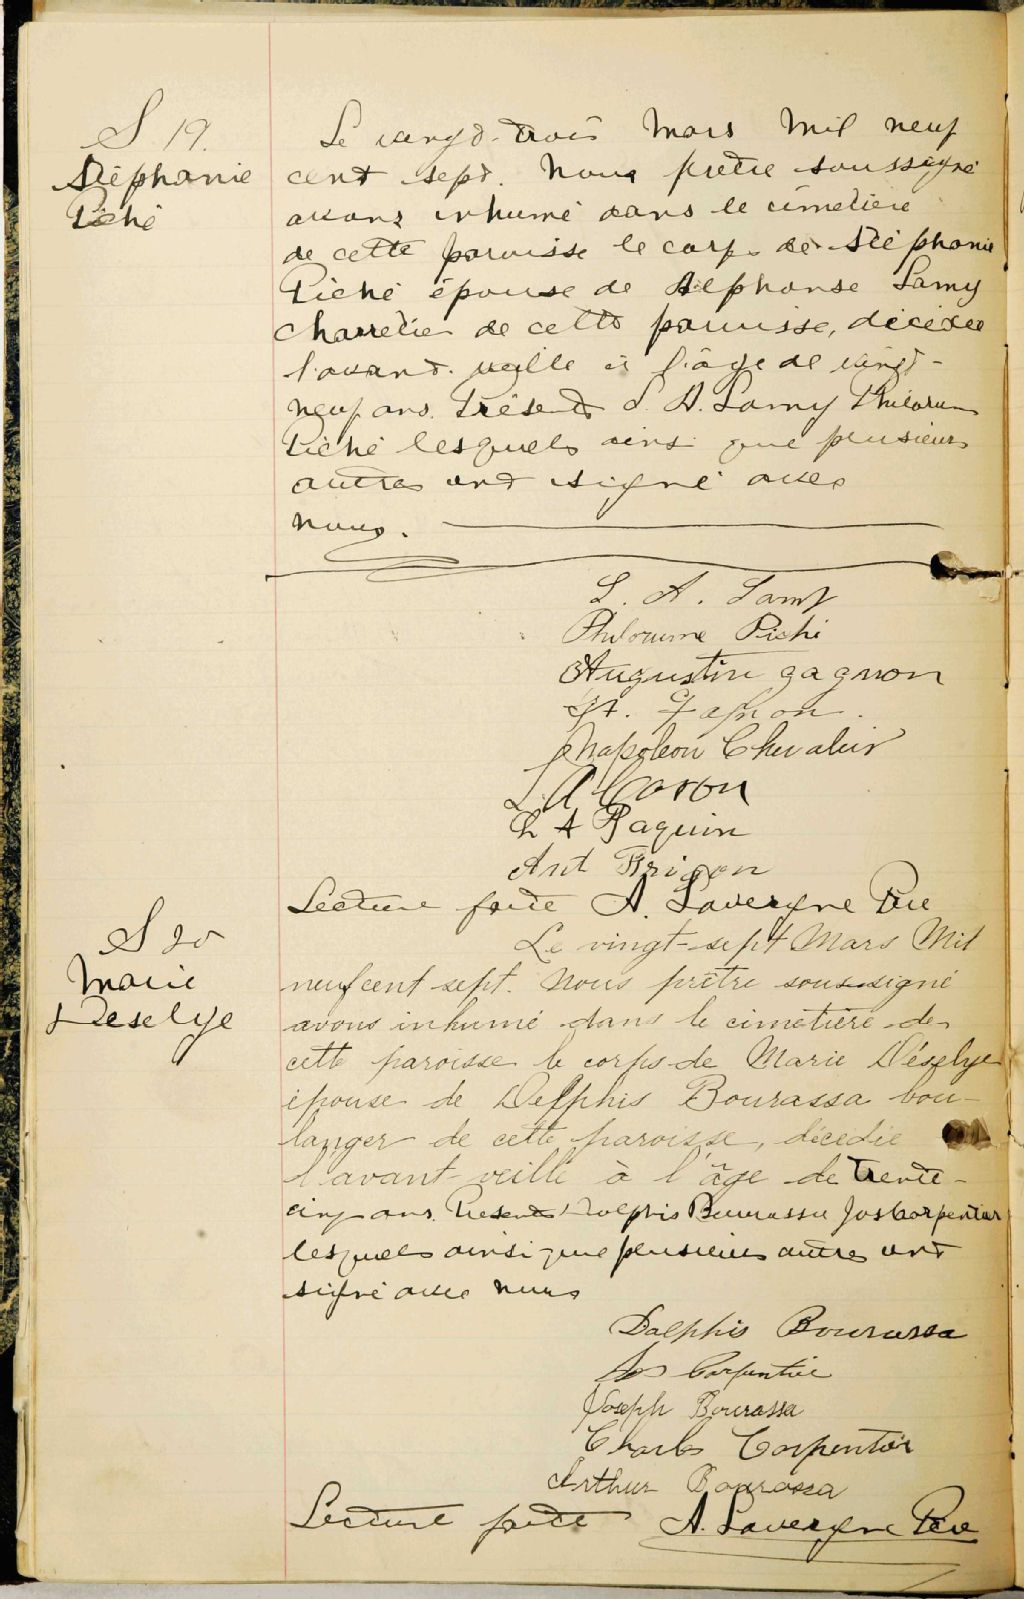 S 19.
Stéphanie
Piché
Le vingt-trois Mars Mil neuf
cent sept. Nous prêtre soussigné
avons inhumé dans le cimetière
de cette paroisse le corps de Stéphanie
Piché épouse de Alphonse Lamy
charretier de cette paroisse, décédée
l'avant-veille à l'âge de vingt-
neuf ans. Présents L. A. Lamy Philorum
Piché lesquels ainsi que plusieurs
autres ont signé avec
nous.
L. A. Lamy
Piché
Augustin gagnon
Gagnon
Napoleon Chevalier
L. A Caron
A Paquin
Ant Frigon
Lecture faite A. Lavergne Ptre
S 20
Marie
Deselye
Le vingt-sept Mars Mil
neuf cent sept. Nous prêtre soussigné
avons inhumé dans le cimetière de
cette paroisse le corps de Marie Déselye
épouse de Delphis Bourassa bou-
langer de cette paroisse, décédée
l'avant-veille à l'âge de trente-
cinq ans. Présents Dolphis Bourassa Jos Carpentier
lesquels ainsi que plusieurs autres ont
signé avec nous
Dalphis Bourassa
Jos Carpentier
Joseph Bourassa
Charles Carpentier
Arthur Bourassa
Lecture faite A. Lavergne Ptre